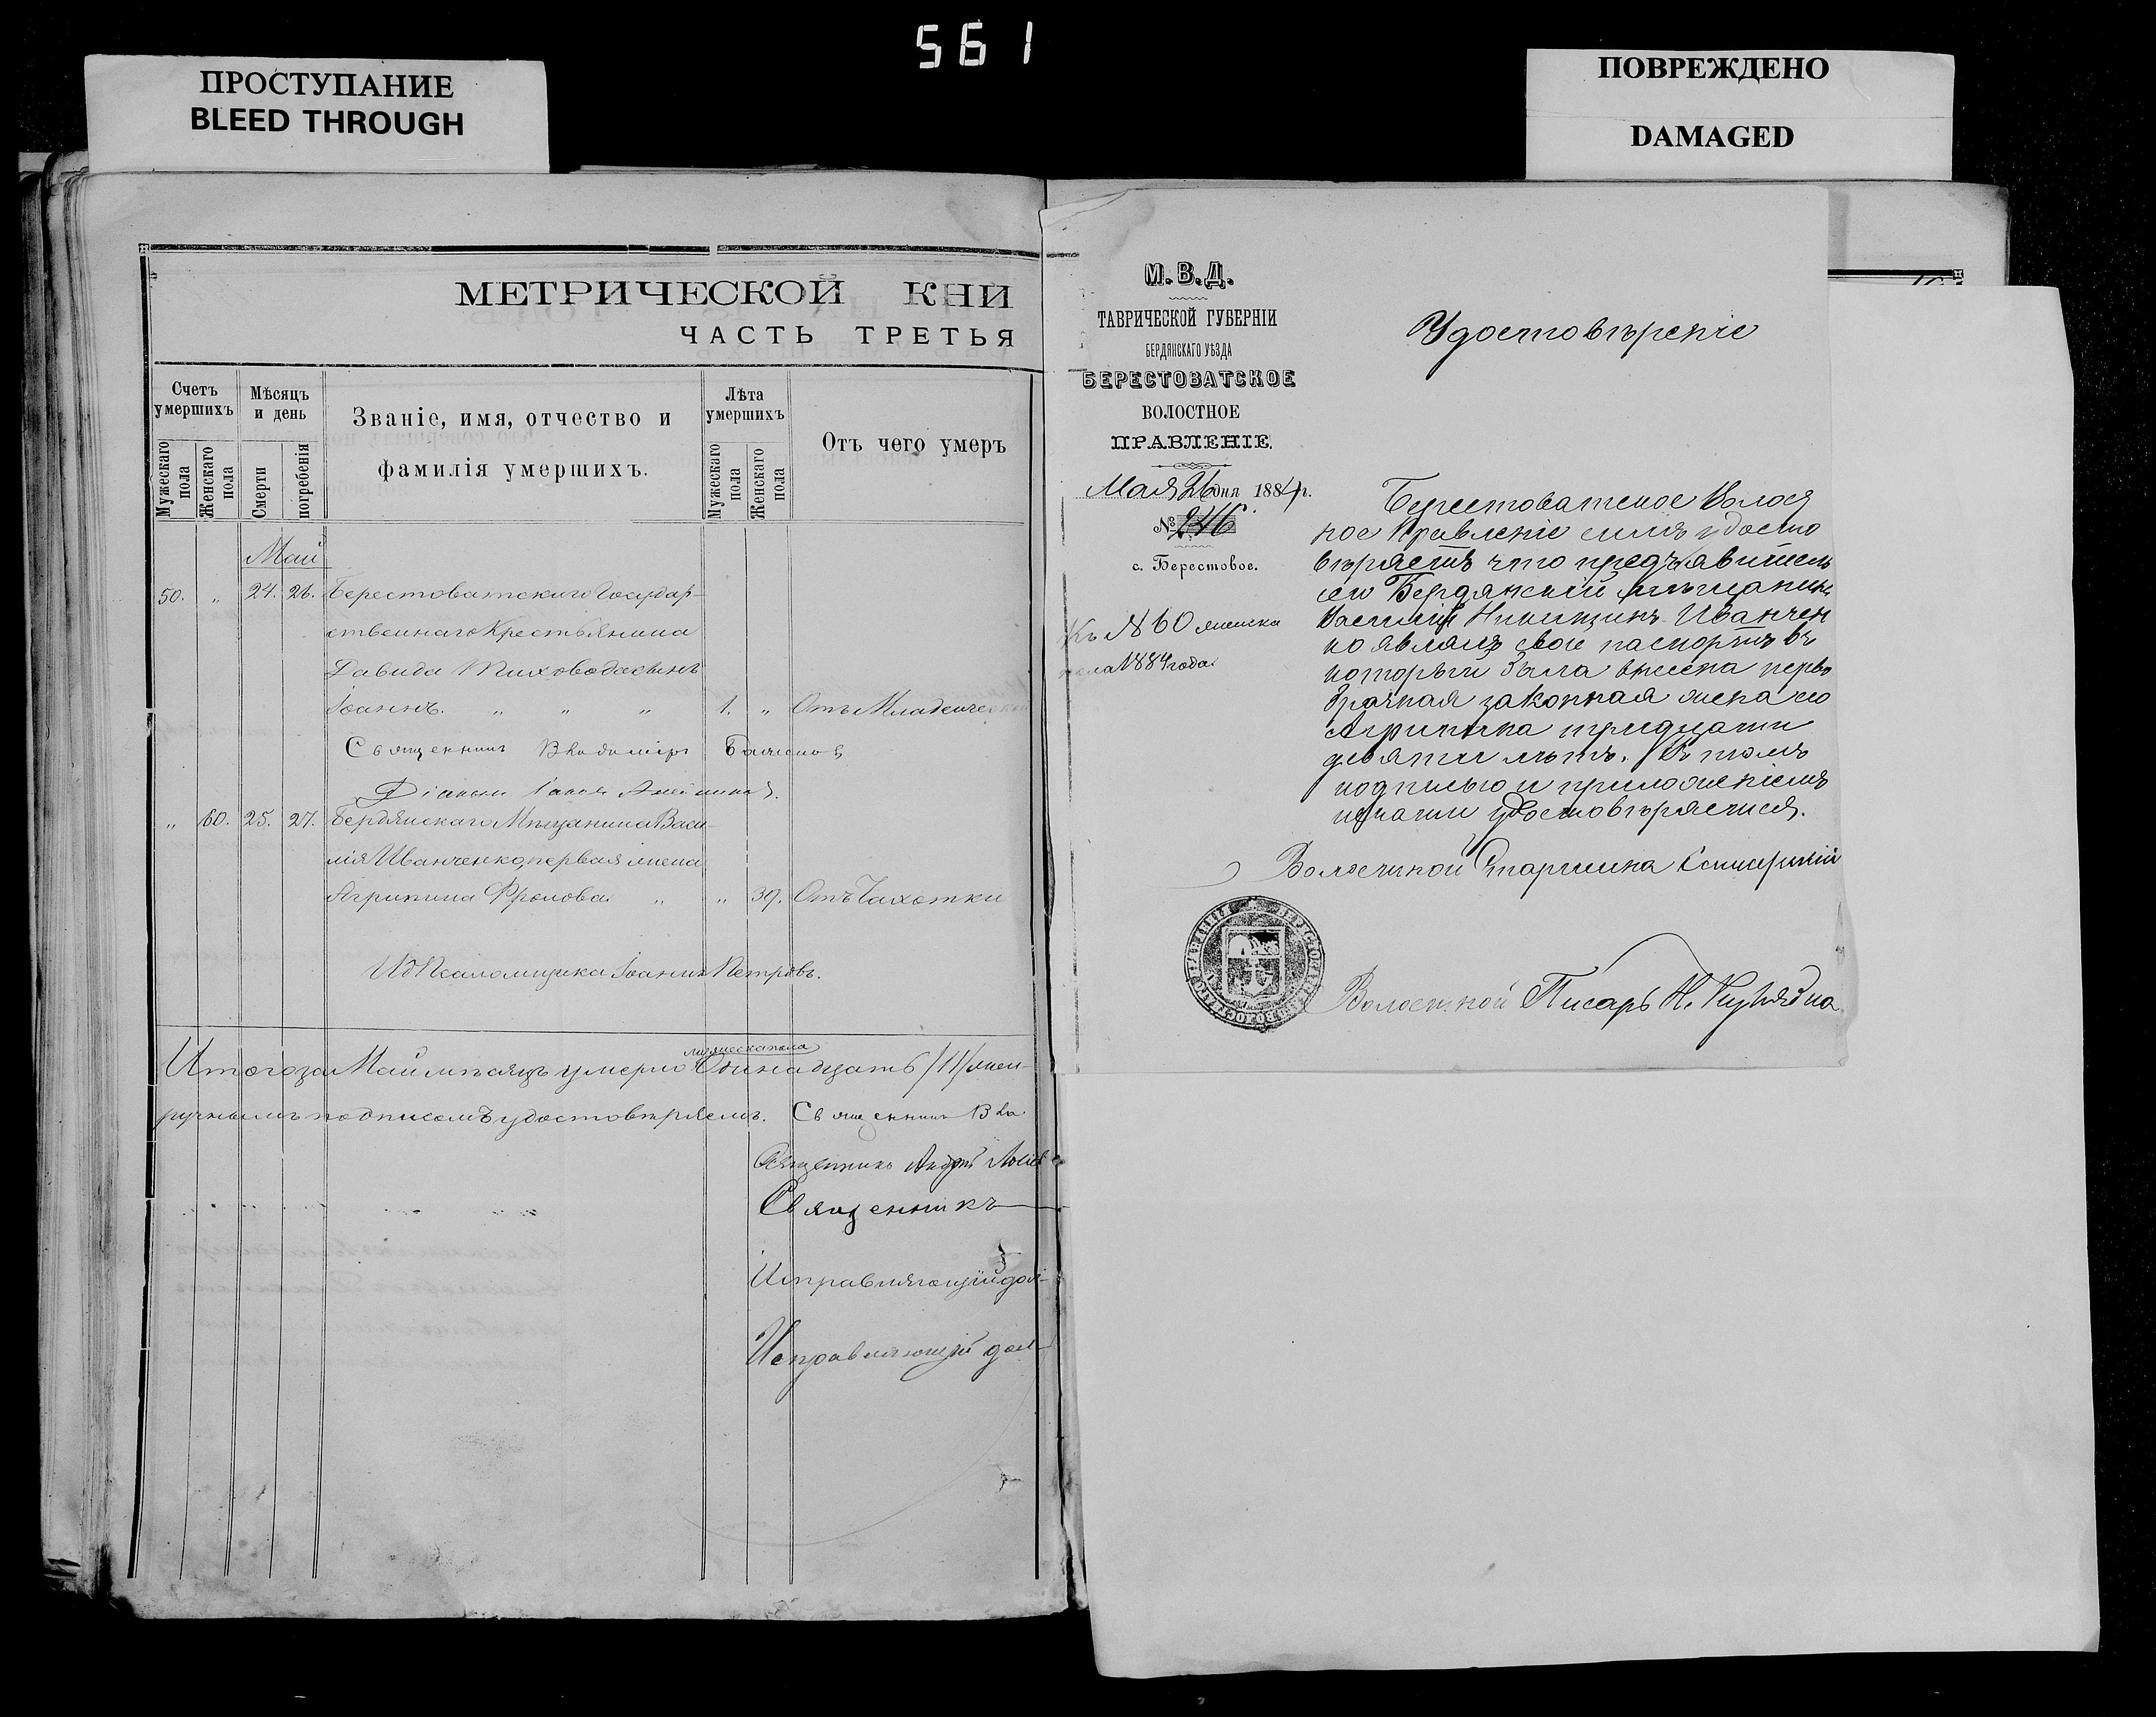 561
ПРОСТУПАНИЕ
BLEED THROUGH
ПОВРЕЖДЕНО
DAMAGED
МЕТРИЧЕСКОЙ КНИ
ЧАСТЬ ТРЕТЬЯ
Счетъ умершихъ
Мужескаго пола
Женскаго пола
Мѣсяцъ и день
Смерти
погребенія
Званіе, имя, отчество и
фамилія умершихъ.
Лѣта умершихъ
Мужескаго пола
Женскаго пола
Отъ чего умеръ
Май
50. „ 24. 26. Берестоватскаго Государ-
ственнаго Крестьянина
Давида Тиховода сынъ
Іоаннъ. „ „ „ 1. „ Отъ Младенческой
Священникъ Владиміръ
Діаконъ
„ 60. 25. 27. Бердянскаго Мѣщанина Васи-
лія Иванченко, первая жена
Агрипина Фролова „ „ 39. Отъ Чахотки
И д Псаломщика Іоаннъ Петровъ.
мужеска пола
Итого за Май мѣсяцъ умерло Одинадцать /11/ жен-
ручнымъ подписомъ удостовѣряемъ. Священникъ Вла
Священникъ Андрей
Священникъ
Исправляющій дол-
Исправляющій дол-
М. В. Д.
ТАВРИЧЕСКОЙ ГУБЕРНІИ
БЕРДЯНСКАГО УѢЗДА
БЕРЕСТОВАТСКОЕ
ВОЛОСТНОЕ
ПРАВЛЕНІЕ.
Мая 26 дня 1884 г.
№ 246
с. Берестовое.
Къ № 60 женска
пола 1884 года.
Удостовѣреніе
Берестоватское Волост
ное Правленіе симъ удосто
вѣряетъ что предъявитель
сего Бердянскій мѣщанинъ
Василій Никитинъ Иванчен
ко являлъ свой паспортъ въ
который была внесена перво
брачная законная жена его
Агрипина тридцати
девяти лѣтъ. Въ томъ
подписью и приложеніемъ
печати удостовѣряется.
Волостной Старшина
Волостной Писарь Н.